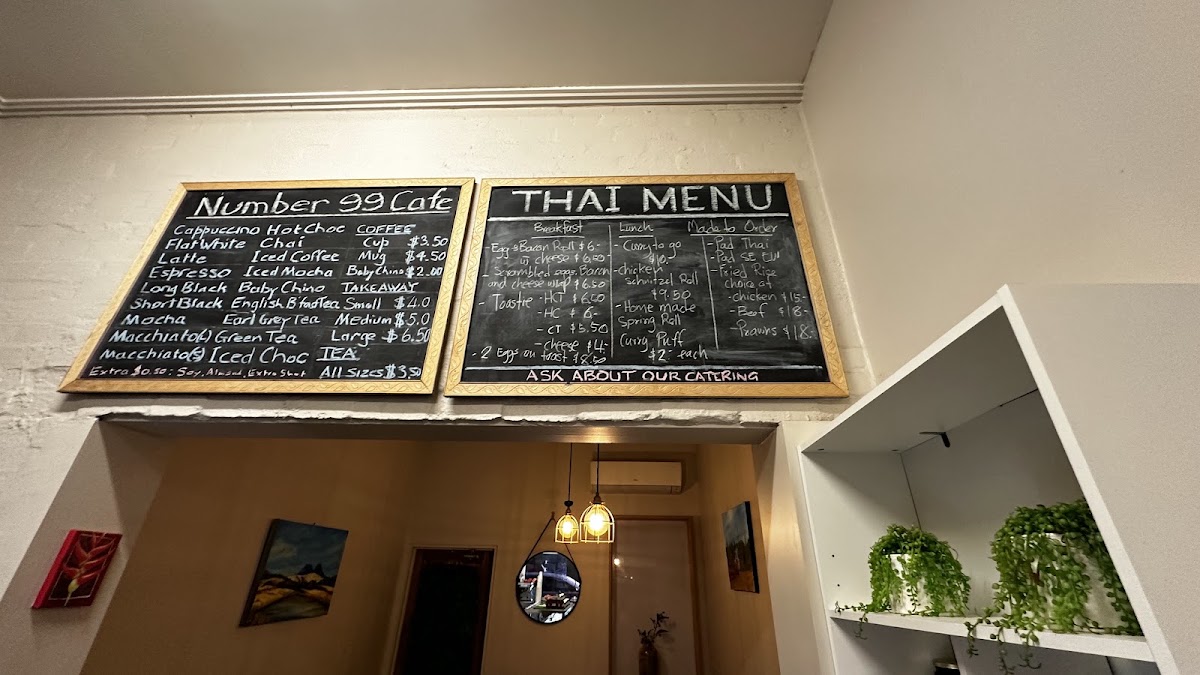 Number 99 Cafe
Cappuccino Hot Choc COFFEE
Flat White Chai Cup $3.50
Latte Iced Coffee Mug $4.50
Espresso Iced Mocha Baby Chino $2.00
Long Black Baby Chino TAKEAWAY
Short Black English B'fast Tea Small $4.0
Mocha Earl Grey Tea Medium $5.0
Macchiato(L) Green Tea Large $6.50
Macchiato(S) Iced Choc TEA
Extra $0.50: Soy, Almond, Extra Shot All Sizes $3.50
THAI MENU
Breakfast
- Egg & Bacon Roll $6-
cheese $6.50-
- Scrambled eggs Bacon
and cheese wrap $6.50
- Toastie - HCT $6.50
- HC $6-
- CT $5.50
- cheese $4-
- 2 Eggs on toast $8.50
Lunch
- Curry to go
$10-
- chicken
schnitzel Roll
$9.50
- Home made
Spring Roll
Curry Puff
$2- each
Made to Order
- Pad Thai
- Pad SE EW
- Fried Rice
choice of
- chicken $15-
- Beef $18-
- Prawns $18-
ASK ABOUT OUR CATERING